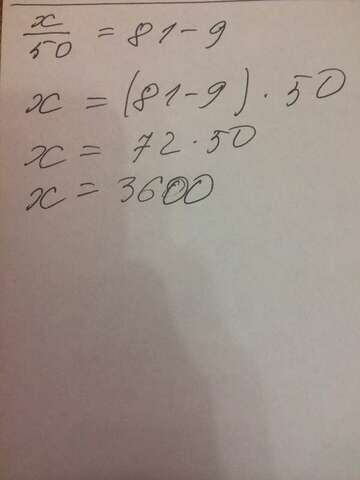 x/50 = 81-9
x = (81-9) · 50
x = 72 · 50
x = 3600